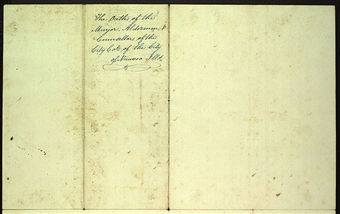 The Oaths of the
Mayor, Aldermen, &
Counsellors of the
City Co. of the City
of Nauvoo Ills.